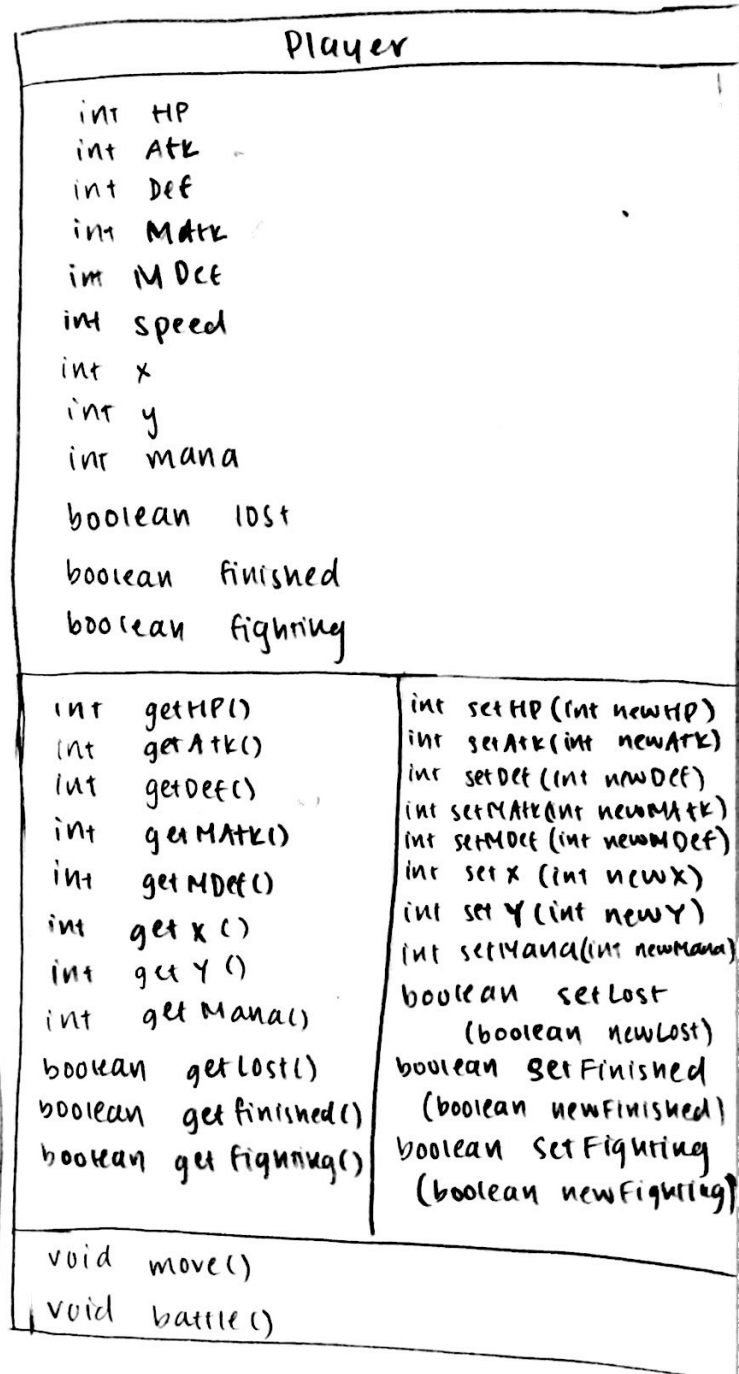 Player
int HP
int Atk
int Def
int MAtk
int MDef
int speed
int x
int y
int mana
boolean lost
boolean finished
boolean fighting
int getHP()
int getAtk()
int getDef()
int getMAtk()
int getMDef()
int getX()
int getY()
int getMana()
boolean getLost()
boolean getfinished()
boolean getfighting()
int setHP(int newHP)
int setAtk(int newAtk)
int setDef(int newDef)
int setMAtk(int newMAtk)
int setMDef(int newMDef)
int setX (int newX)
int setY (int newY)
int setMana(int newMana)
boolean setLost
(boolean newLost)
boolean setFinished
(boolean newFinished)
boolean setFighting
(boolean newFighting)
void move()
void battle()